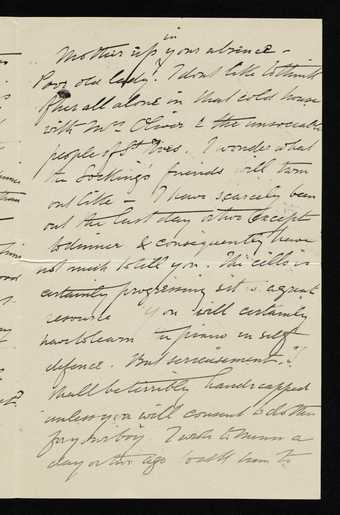 in
Mother up your absence –
Poor old lady! I dont like to think
of her all alone in that cold house
with Mrs Oliver & the unsociable
people of St Ives. I wonder what
the friends will turn
out like – I have scarcely been
out the last day or two except
to dinner & consequently have
not much to tell you. The cello is
certainly progressing it is a great
resource you will certainly
have to learn piano in self
defence. But
shall be terribly handicapped
unless you will consent to do this
for your boy. I wrote to a
day or two ago